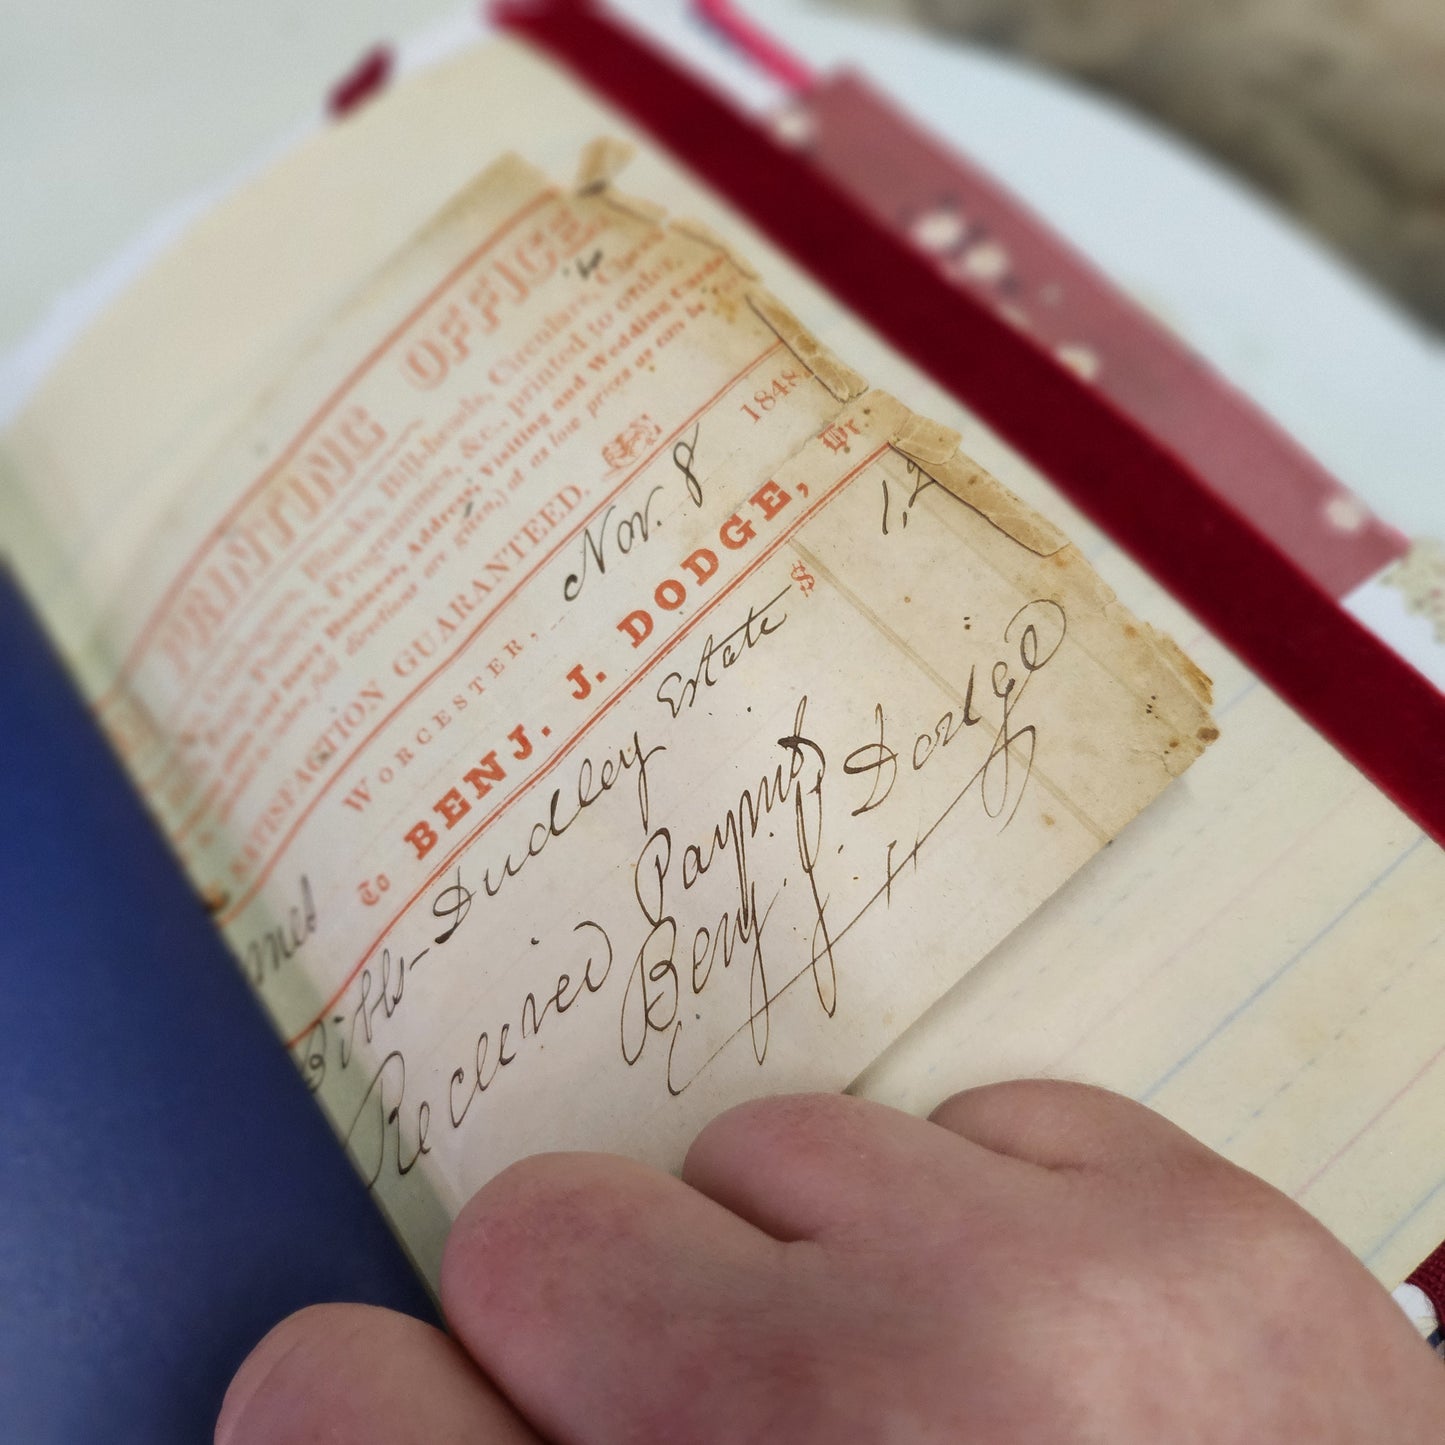 PRINTING OFFICE
Blanks, Bill-heads, Circulars,
Posters, Programmes, &c., printed to order.
and fancy Business, Address, Visiting and Wedding Cards
directions are given,) at as low prices as can be
SATISFACTION GUARANTEED.
WORCESTER, Nov. 8 1848
To BENJ. J. DODGE, Dr.
$ 1,2
Bills – Dudley Estate
Received Paymt
Benj. J. Dodge